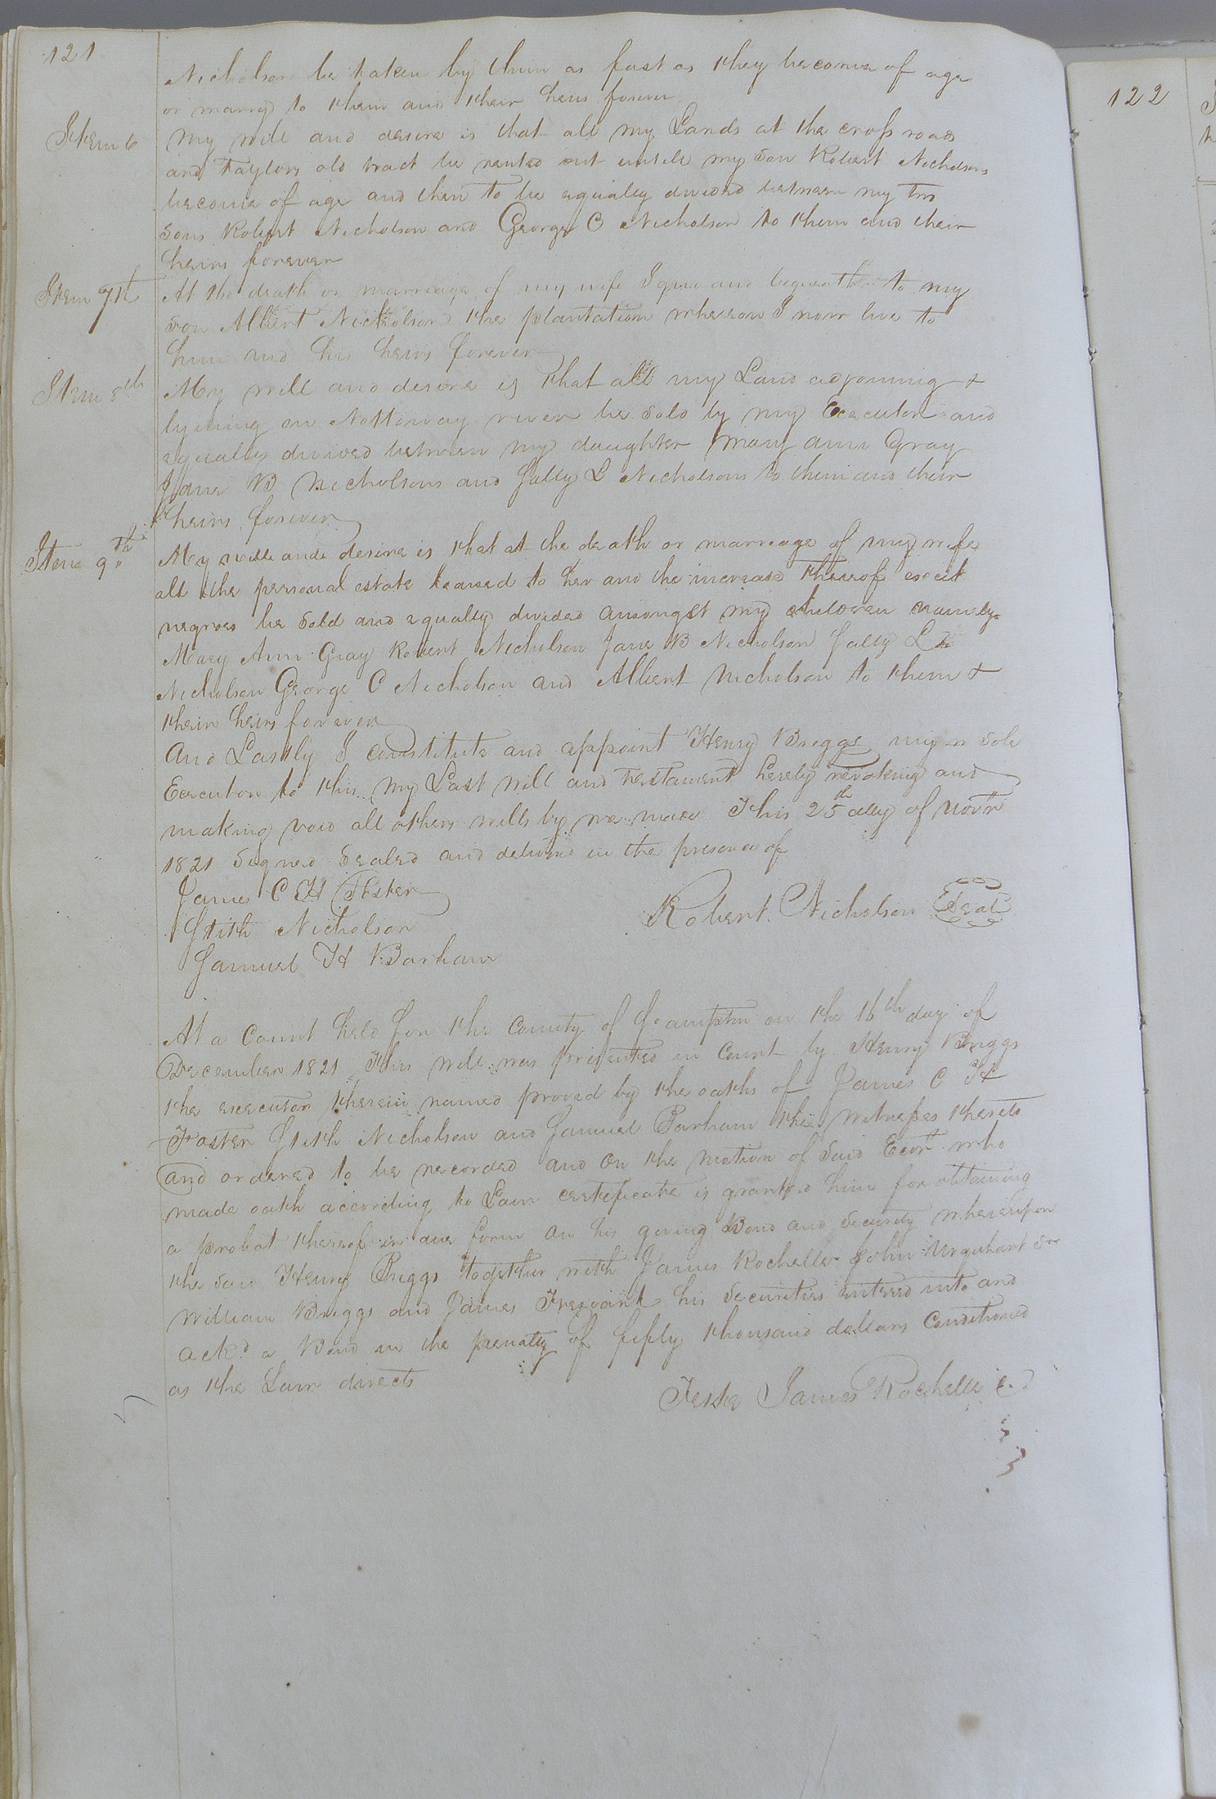 121
Nicholson be taken by them as fast as they become of age
or marry to them and their heirs forever
Item 6 My will and desire is that all my Lands at the cross roads
and Taylors old tract be rented out untill my son Robert Nicholson
become of age and then to be equally divided between my two
sons Robert Nicholson and George C Nicholson to them and their
heirs forever
Item 7th At the death or marriage of my wife I give and bequeath to my
son Albert Nicholson the plantation whereon I now live to
him and his heirs forever
Item 8th My will and desire is that all my Land adjoining &
lyeing on Nottoway river be sold by my Executor and
equally divided between my daughter Mary Ann Gray
Jane B Nicholson and Sally L Nicholson to them and their
heirs forever
Item 9th My will and desire is that at the death or marriage of my wife
all the personal estate loaned to her and the increase thereof except
negroes be sold and equally divided amongst my children namely
Mary Ann Gray Robert Nicholson Jane B Nicholson Sally L
Nicholson George C Nicholson and Albert Nicholson to them &
their heirs forever
And Lastly I constitute and appoint Henry Briggs my sole
Executor to this my Last will and testament hereby revoking and
making void all others wills by me made This 25th day of Novr
1821 Signed Sealed and deliverd in the presence of
James C H Foster
Robert Nicholson Seal
Stith Nicholson
Samuel H Barham
At a Court held for the County of Sohampton on the 16th day of
December 1821 This will was presented in Court by Henry Briggs
the executor therein named proved by the oaths of James C H
Foster Stith Nicholson and Samuel Barham the witnesses thereto
and ordered to be recorded and on the motion of said Exor who
made oath according to Law certificate is granted him for obtaining
a probat thereof in due form on his giving Bond and Security whereupon
the said Henry Briggs together with James Rochelle John Urquhart Snr
William Briggs and James Trezvant his Securities entered into and
ackd a Bond in the penalty of fifty thousand dollars Conditioned
as the Law directs
Teste James Rochelle
122